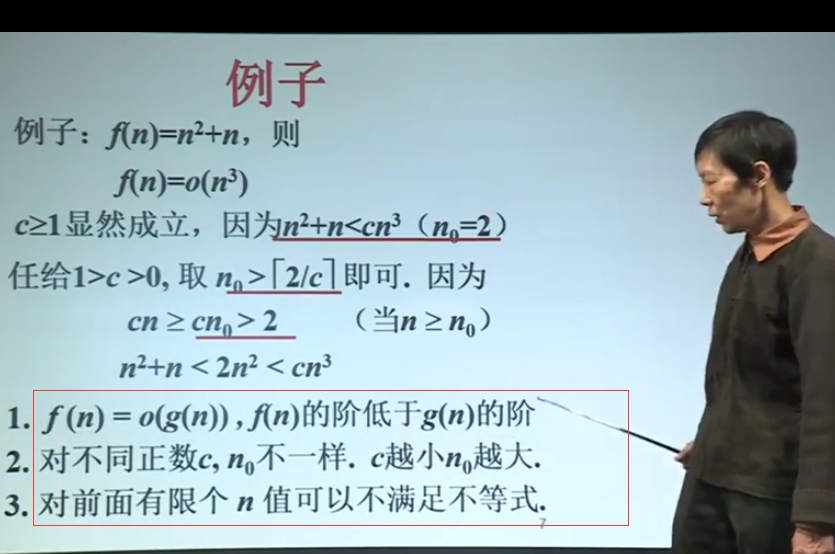 例子
例子：f(n)=n²+n，则
f(n)=o(n³)
c≥1显然成立，因为n²+n<cn³（n₀=2）
任给1>c >0, 取 n₀ >⌈2/c⌉ 即可. 因为
cn ≥ cn₀ > 2 （当n ≥ n₀）
n²+n < 2n² < cn³
1. f (n) = o(g(n)) , f(n)的阶低于g(n)的阶
2. 对不同正数c, n₀不一样. c越小n₀越大.
3. 对前面有限个 n 值可以不满足不等式.
7